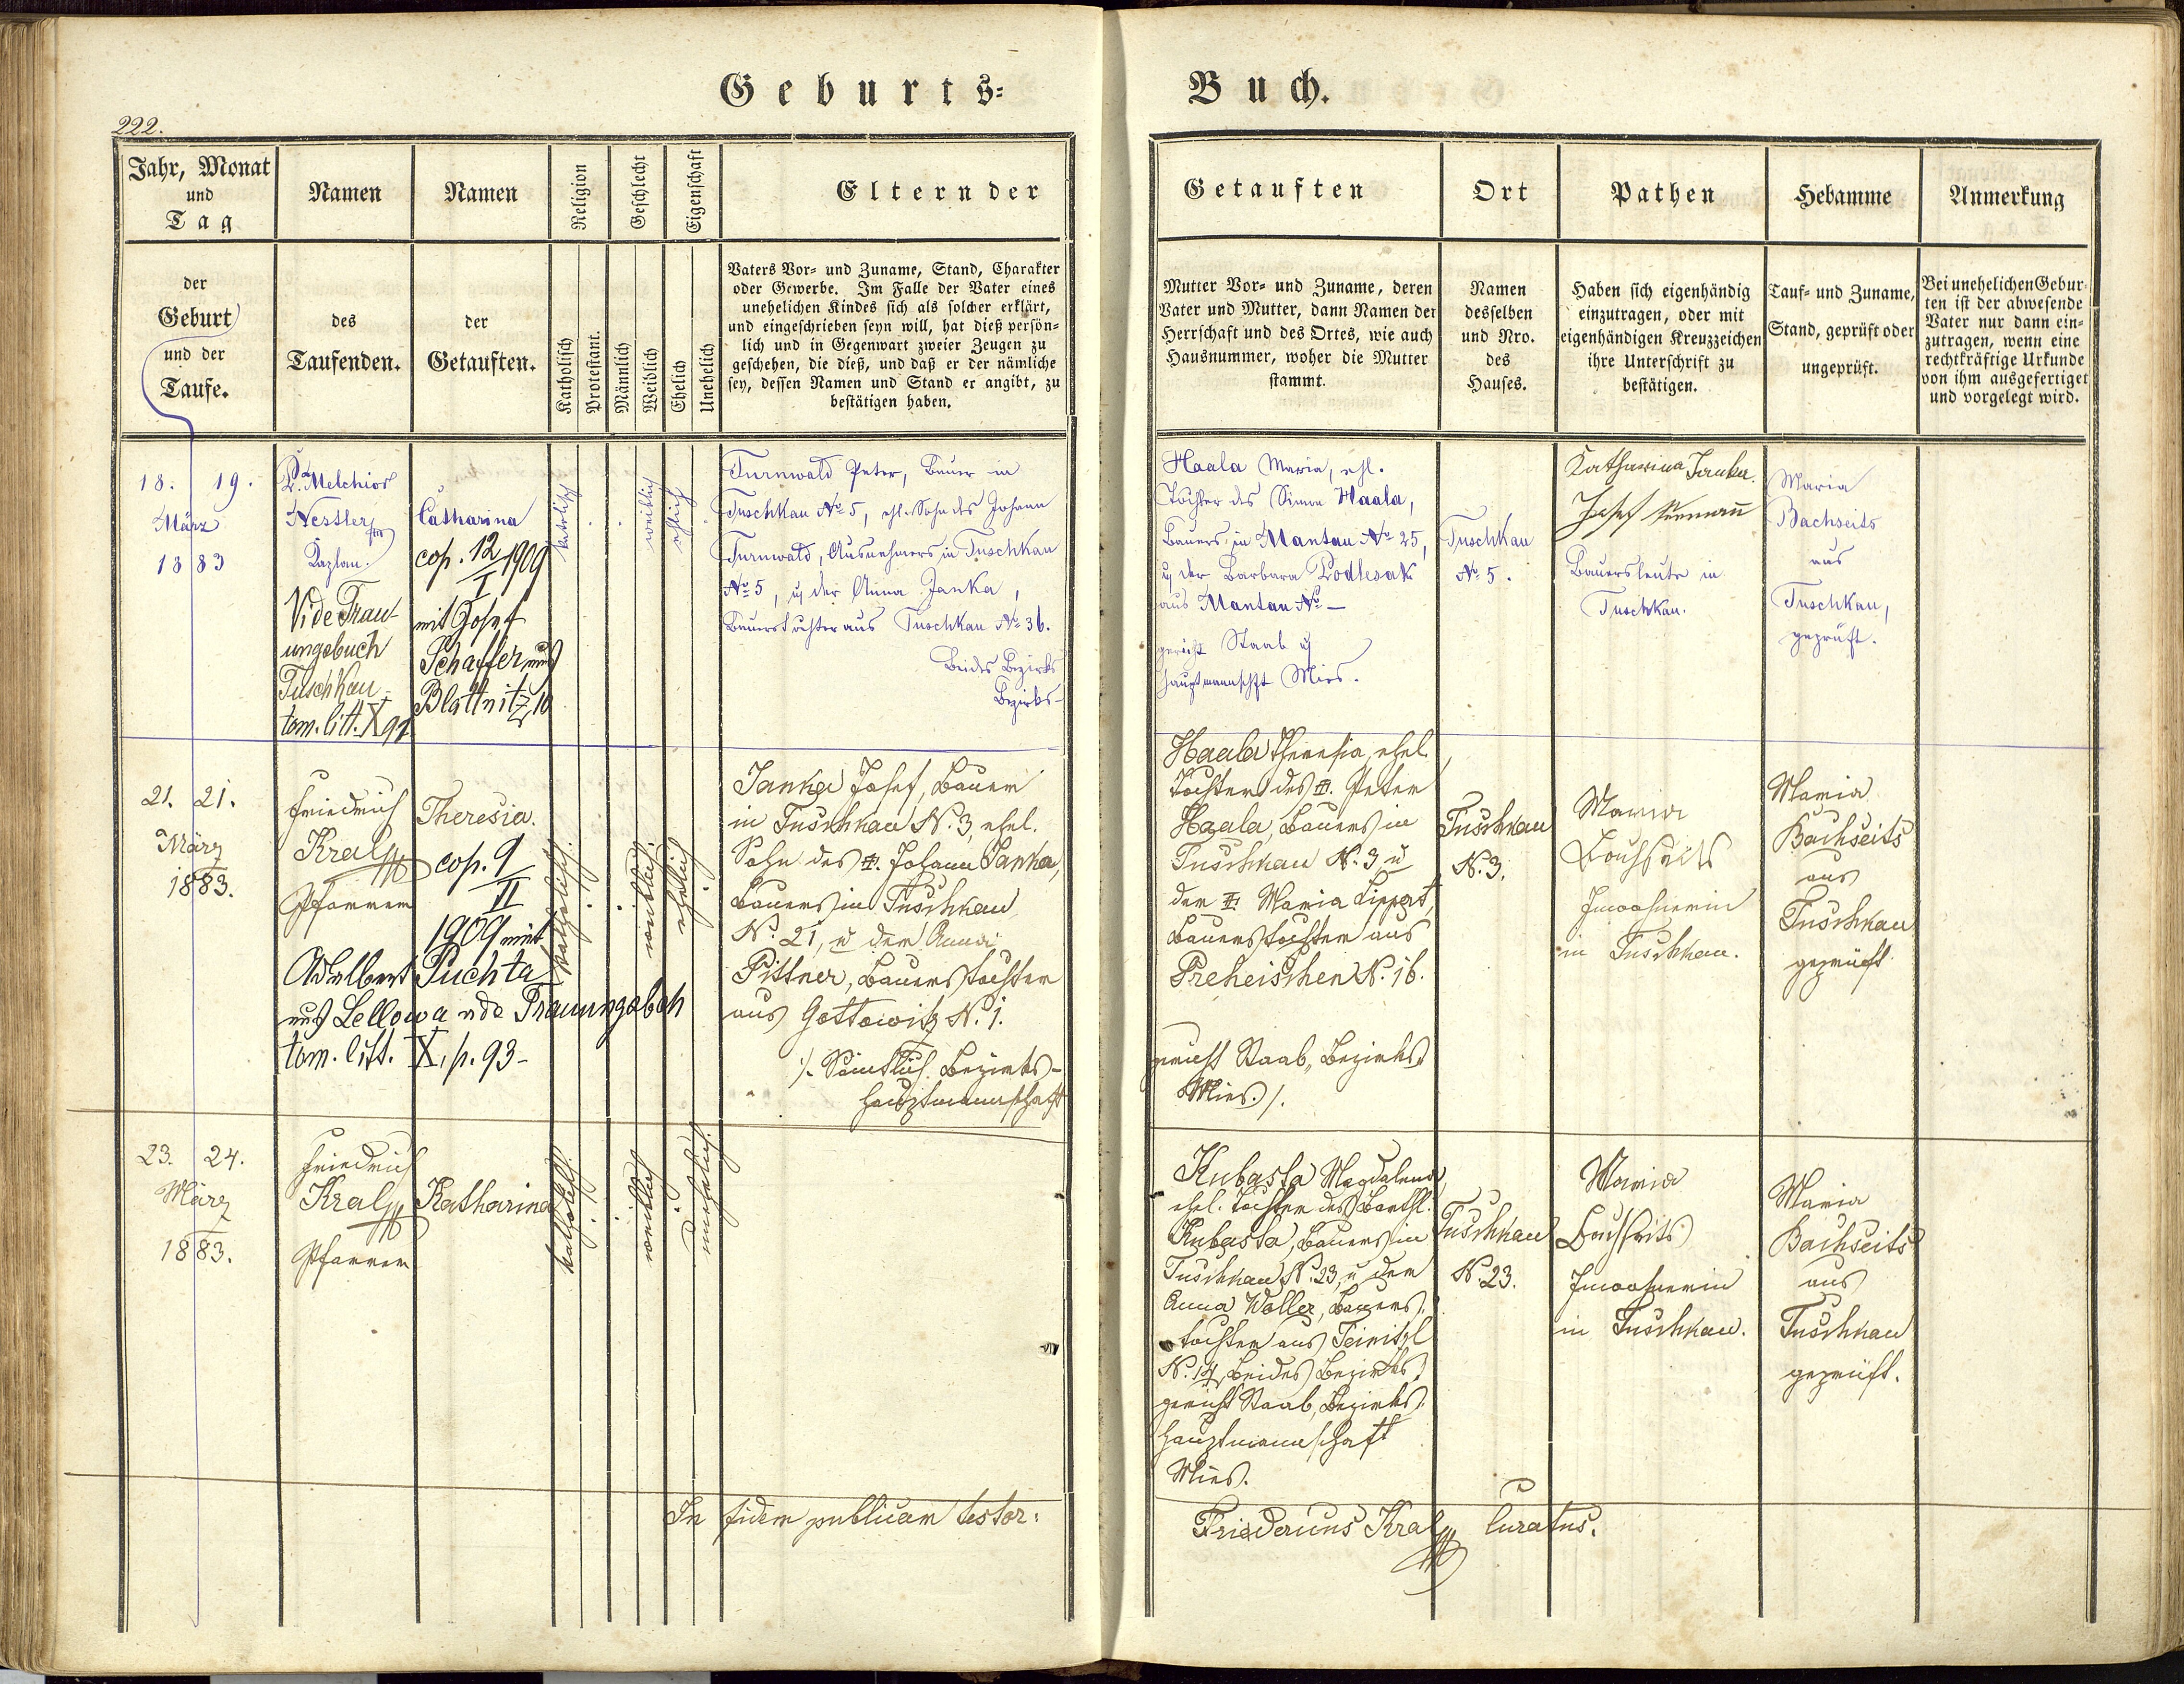 Geburts-
Buch.
222.
Jahr, Monat
und
Tag
Namen
Namen
Religion
Geschlecht
Eigenschaft
Eltern der
der
Geburt
und der
Taufe.
des
Taufenden.
der
Getauften.
Katholisch
Protestant.
Männlich
Weiblich
Ehelich
Unehelich
Vaters Vor- und Zuname, Stand, Charakter
oder Gewerbe. Im Falle der Vater eines
unehelichen Kindes sich als solcher erklärt,
und eingeschrieben seyn will, hat dieß persön-
lich und in Gegenwart zweier Zeugen zu
geschehen, die dieß, und daß er der nämliche
sey, dessen Namen und Stand er angibt, zu
bestätigen haben.
Getauften
Ort
Pathen
Hebamme
Anmerkung
Mutter Vor- und Zuname, deren
Vater und Mutter, dann Namen der
Herrschaft und des Ortes, wie auch
Hausnummer, woher die Mutter
stammt.
Namen
desselben
und Nro.
des
Hauses.
Haben sich eigenhändig
einzutragen, oder mit
eigenhändigen Kreuzzeichen
ihre Unterschrift zu
bestätigen.
Tauf- und Zuname,
Stand, geprüft oder
ungeprüft.
Bei unehelichen Gebur-
ten ist der abwesende
Vater nur dann ein-
zutragen, wenn eine
rechtkräftige Urkunde
von ihm ausgefertiget
und vorgelegt wird.
18. 19.
März
1883
P. Melchior
Nessler
Kaplan.
Vide Trau-
ungsbuch
Tuschkau
tom. litt. X 92
Catharina
cop. 12/I 1909
mit Josef
Schaffer aus
Blattnitz 10
katolisch
weiblich
ehlich
Turnwald Peter, Bauer in
Tuschkau No 5, ehl. Sohn des Johann
Turnwald, Ausnehmers in Tuschkau
No 5, u der Anna Janka,
Bauerstochter aus Tuschkau No 36.
Beides Bezirks
Bezirks-
Haala Maria, ehl.
Tochter des Simon Haala,
Bauers in Mantau No 25,
u der Barbara Podlesak
aus Mantau No —
gericht Staab u
hauptmannschft Mies.
Tuschkau
No 5.
Katharina Janka.
Josef
Bauersleute in
Tuschkau.
Maria
Bachseits
aus
Tuschkau,
geprüft.
21. 21.
März
1883.
Friedrich
Kral
Pfarrer
Theresia.
cop. 9/II
1909 mit
Adalbert Puchta
aus Lellowa vide Trauungsbch
tom. litt. X, p. 93-
katholisch.
weiblich.
ehelich
Janka Josef, Bauer
in Tuschkau N. 3, ehel.
Sohn des Johann Janka,
Bauers in Tuschkau
N. 21, u der Anna
Pittner, Bauerstochter
aus Gottowitz N. 1.
/. Sämtlich Bezirks-
hauptmannschaft
Haala Theresia, ehel.
Tochter des Peter
Haala, Bauers in
Tuschkau N. 3 u
der Maria Lippert,
Bauerstochter aus
Preheischen N. 16.
gericht Staab, Bezirks
Mies. /.
Tuschkau
N. 3.
Maria
Bachseits
Inwohnerin
in Tuschkau.
Maria
Bachseits
aus
Tuschkau
geprüft.
23. 24.
März
1883.
Friedrich
Kral
Pfarrer
Katharina
katholisch.
weiblich
unehelich.
Kubasta Magdalena,
ehel. Tochter des Barthl.
Kubasta, Bauers in
Tuschkau N. 23, u der
Anna Waller, Bauers-
tochter aus Teinitzl
N. 14, beides Bezirks-
gericht Staab, Bezirks-
hauptmannschaft
Mies.
Tuschkau
N. 23.
Maria
Bachseits
Inwohnerin
in Tuschkau.
Maria
Bachseits
aus
Tuschkau
geprüft.
In fidem publicam testor:
Fridericus Kral Curatus.